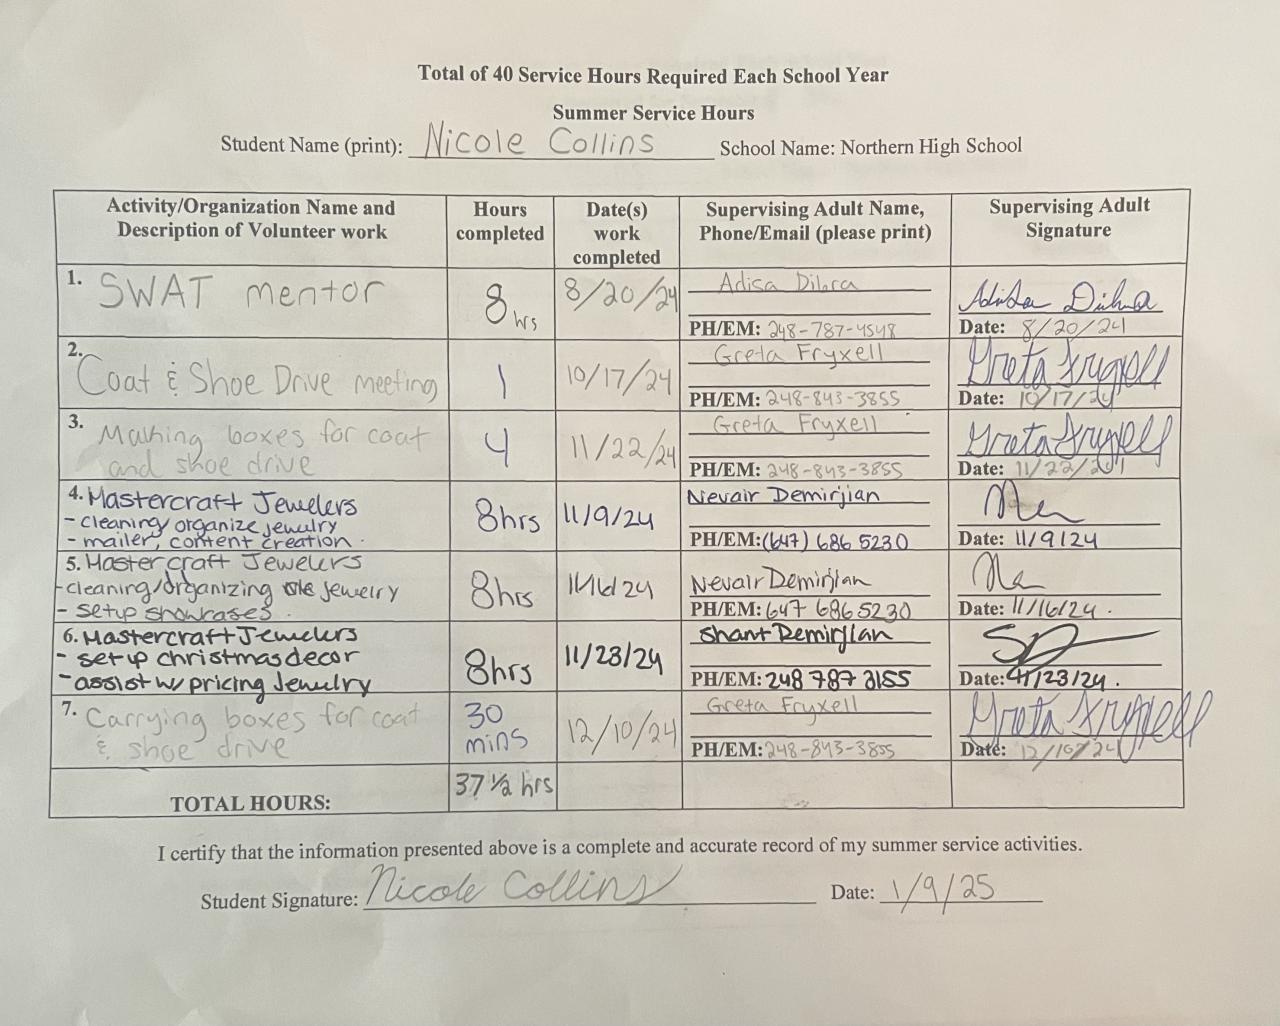 Total of 40 Service Hours Required Each School Year
Summer Service Hours
Student Name (print): Nicole Collins School Name: Northern High School
Activity/Organization Name and Description of Volunteer work
Hours completed
Date(s) work completed
Supervising Adult Name, Phone/Email (please print)
Supervising Adult Signature
1. SWAT mentor
8 hrs
8/20/24
Adisa Dibra
PH/EM: 248-787-4548
Adisa Dibra
Date: 8/20/24
2. Coat & Shoe Drive meeting
1
10/17/24
Greta Fryxell
PH/EM: 248-843-3855
Greta Fryxell
Date: 10/17/24
3. Making boxes for coat
and shoe drive
4
11/22/24
Greta Fryxell
PH/EM: 248-843-3855
Greta Fryxell
Date: 11/22/24
4. Mastercraft Jewelers
- cleaning/organize jewulry
- mailer, content creation.
8hrs
11/9/24
Nevair Demirjian
PH/EM: (647) 686 5230
Date: 11/9/24
5. Mastercraft Jewelers
- cleaning/organizing jewelry
- setup showcases.
8hrs
11/16/24
Nevair Demirjian
PH/EM: 647 686 5230
Date: 11/16/24.
6. Mastercraft Jewelers
- setup christmas decor
- assist w/ pricing Jewulry
8hrs
11/23/24
Shant Demirjian
PH/EM: 248 787 3155
SD
Date: 11/23/24.
7. Carrying boxes for coat
& shoe drive
30
mins
12/10/24
Greta Fryxell
PH/EM: 248-843-3855
Greta Fryxell
Date: 12/10/24
TOTAL HOURS: 37 ½ hrs
I certify that the information presented above is a complete and accurate record of my summer service activities.
Student Signature: Nicole Collins Date: 1/9/25